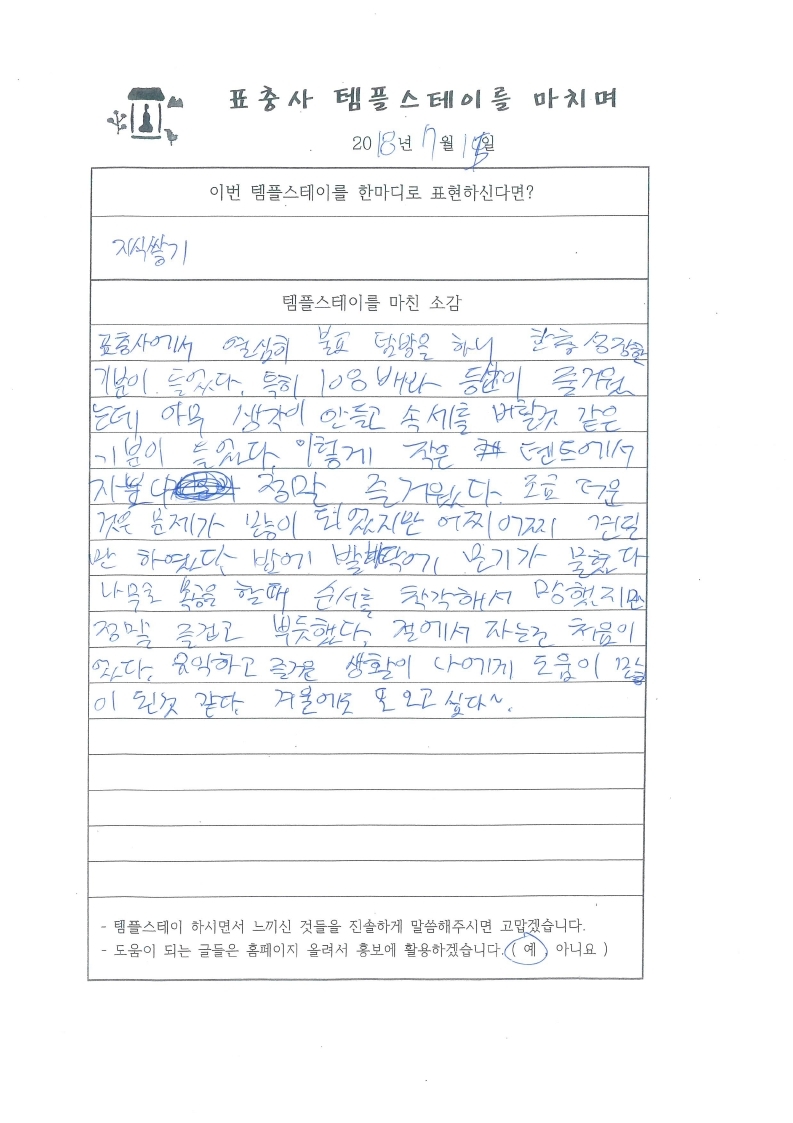 표충사 템플스테이를 마치며
2018년 7월 일
이번 템플스테이를 한마디로 표현하신다면?
지식쌓기
템플스테이를 마친 소감
표충사에서 열심히 탐방을 하니 한층 성장한
기분이 들었다. 특히 108배와 등산이 즐거웠
는데 아무 생각이 안들고 속세를 버릴것 같은
기분이 들었다. 이렇게 작은 텐트에서
정말 즐거웠다. 조금 더운
것은 문제가 많이 되었지만 어찌어찌 견딜
만 하였다. 밤에 모기가 물었다
나무로 할때 순서를 착각해서 망했지만
정말 즐겁고 뿌듯했다. 절에서 자는건 처음이
었다. 유익하고 즐거운 생활이 나에게 도움이 많
이 된것 같다. 겨울에도 또 오고 싶다~.
- 템플스테이 하시면서 느끼신 것들을 진솔하게 말씀해주시면 고맙겠습니다.
- 도움이 되는 글들은 홈페이지 올려서 홍보에 활용하겠습니다. ( 예 아니요 )